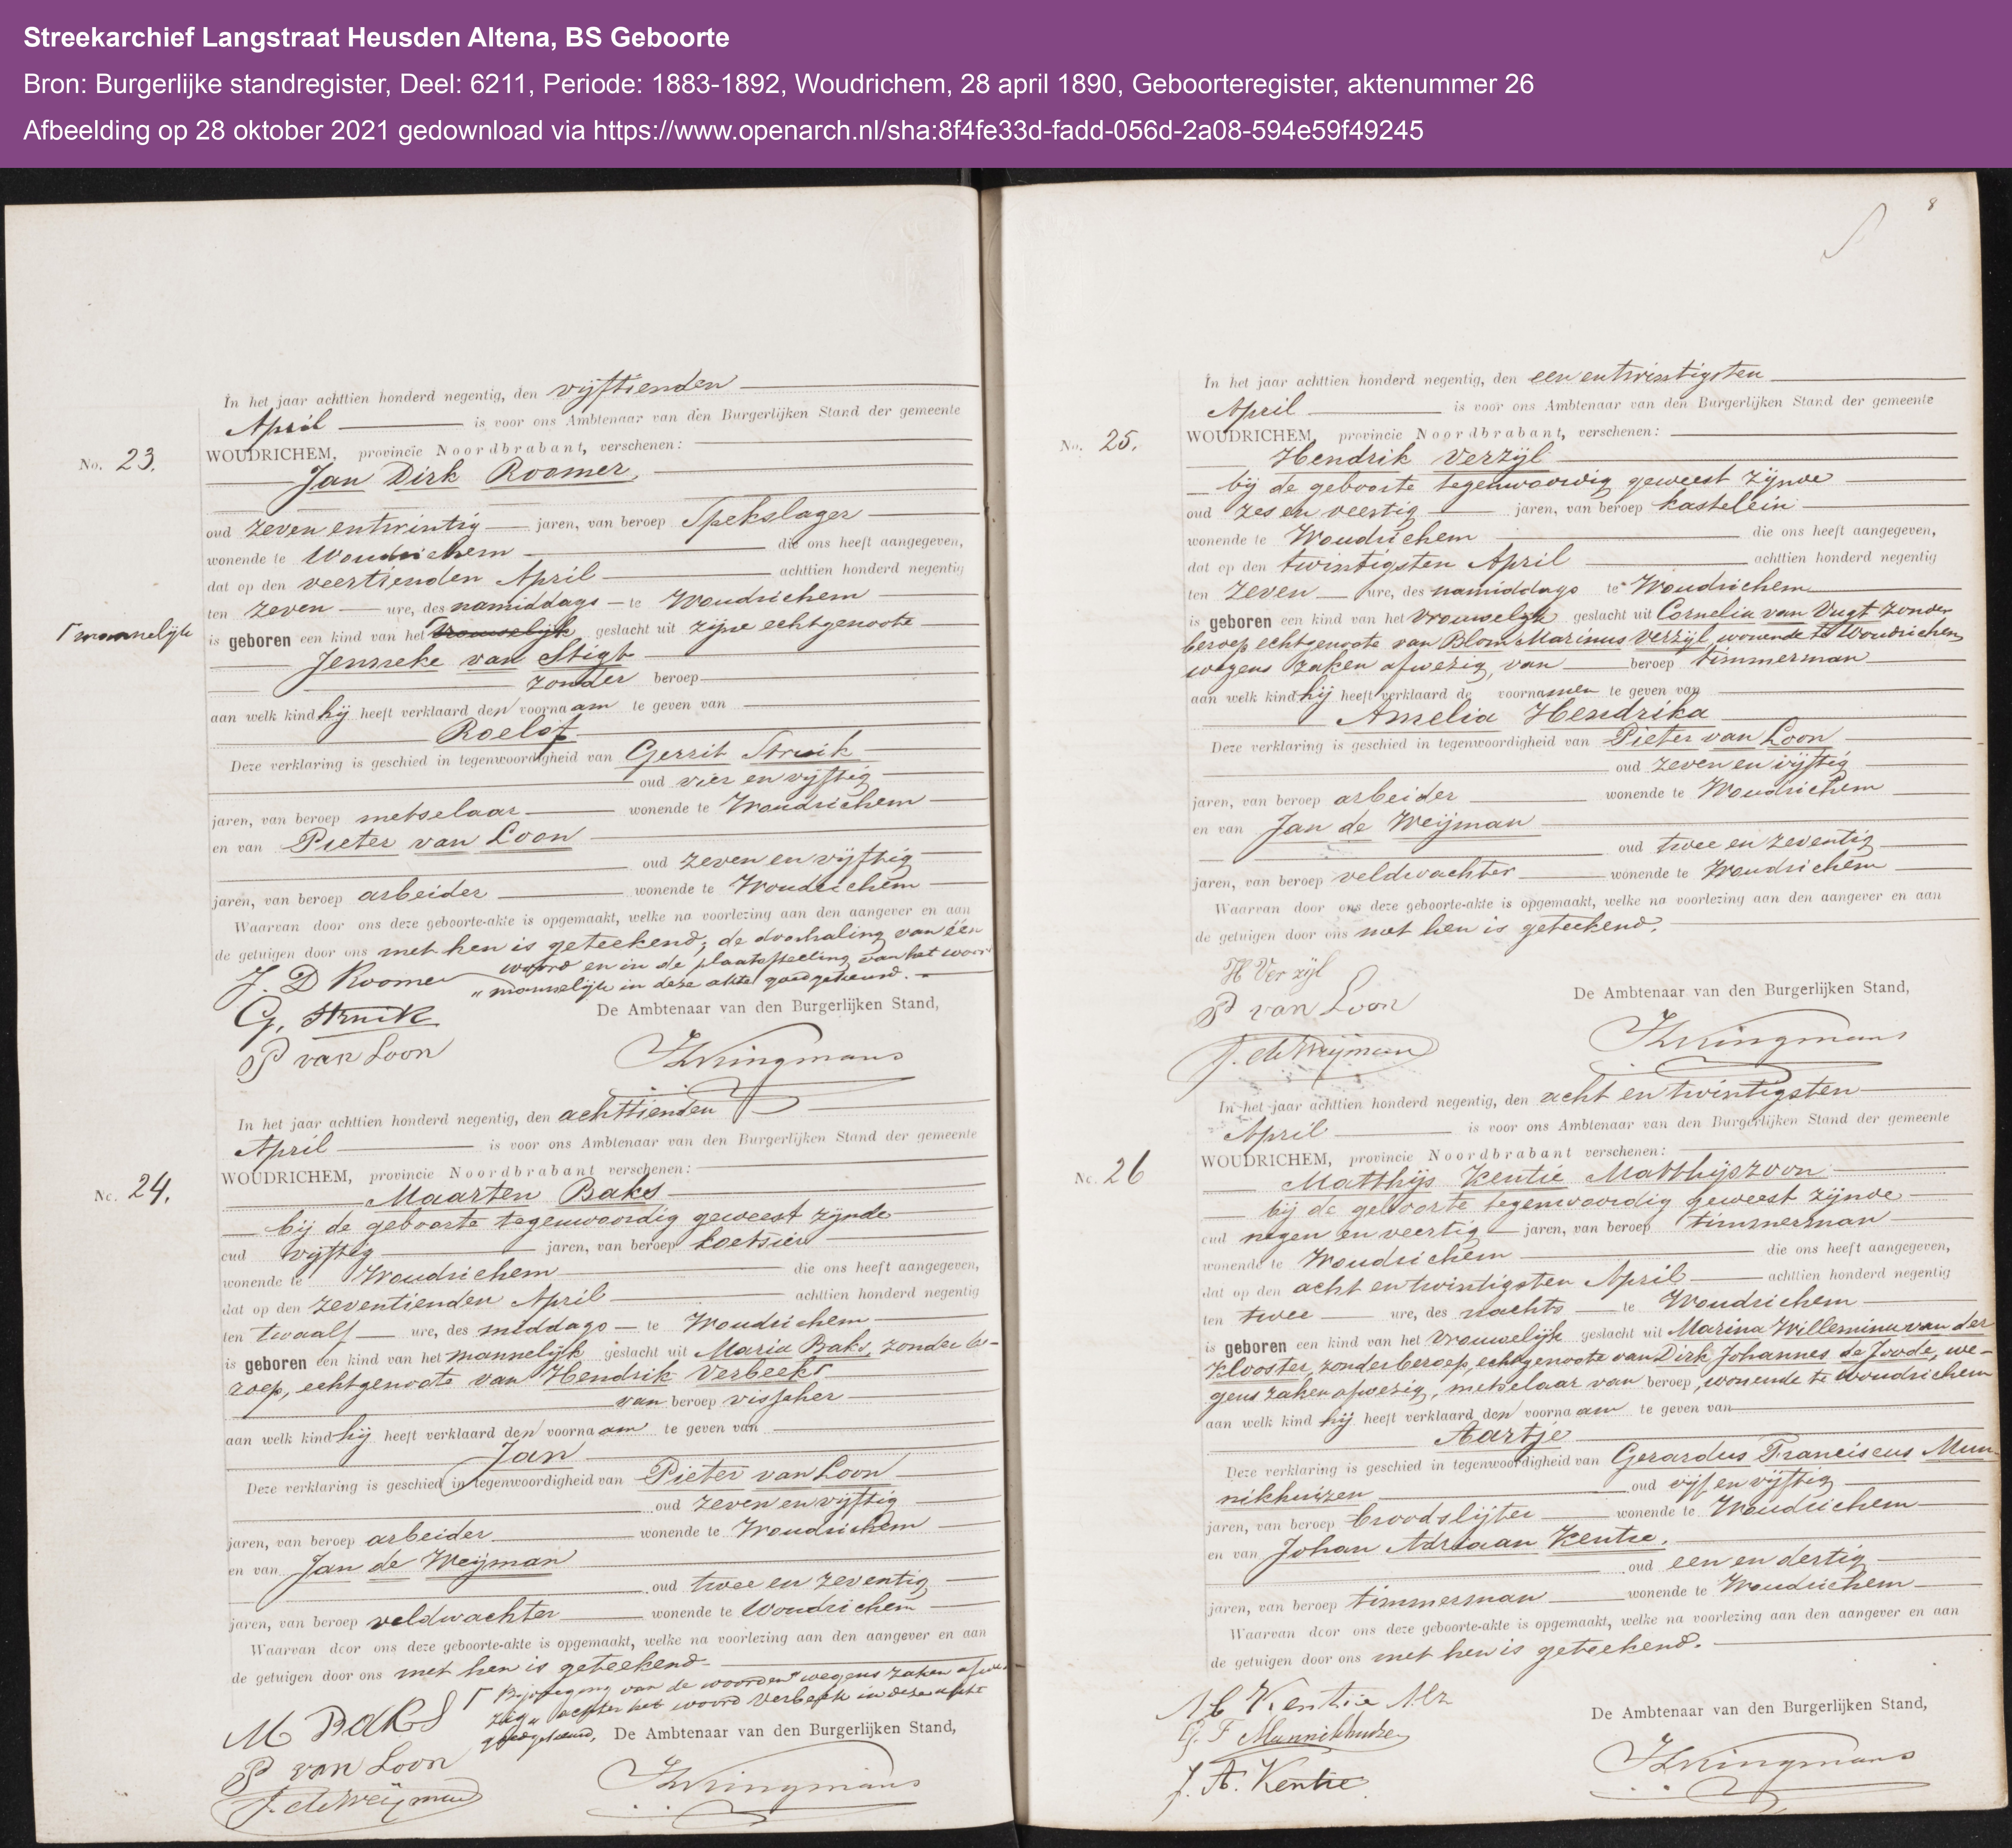 Streekarchief Langstraat Heusden Altena, BS Geboorte
Bron: Burgerlijke standregister, Deel: 6211, Periode: 1883-1892, Woudrichem, 28 april 1890, Geboorteregister, aktenummer 26
Afbeelding op 28 oktober 2021 gedownload via https://www.openarch.nl/sha:8f4fe33d-fadd-056d-2a08-594e59f49245
In het jaar achttien honderd negentig, den vijftienden
April is voor ons Ambtenaar van den Burgerlijken Stand der gemeente
No. 23. WOUDRICHEM, provincie Noordbrabant, verschenen:
Jan Dirk Roomer,
oud zeven entwintig jaren, van beroep Spekslager
wonende te Woudrichem die ons heeft aangegeven,
dat op den veertienden April achttien honderd negentig
ten zeven ure, des namiddags te Woudrichem
⌈ mannelijk is geboren een kind van het vrouwelijk geslacht uit zijne echtgenoote
Jenneke van Stigt
zonder beroep
aan welk kind hij heeft verklaard den voornaam te geven van
Roelof
Deze verklaring is geschied in tegenwoordigheid van Gerrit Struik
oud vier en vijftig
jaren, van beroep metselaar wonende te Woudrichem
en van Pieter van Loon
oud zeven en vijftig
jaren, van beroep arbeider wonende te Woudrichem
Waarvan door ons deze geboorte-akte is opgemaakt, welke na voorlezing aan den aangever en aan
de getuigen door ons met hen is geteekend; de doorhaling van één
woord en in de plaatsstelling van het woord
„mannelijk in deze akte goedgekeurd.
J. D Roomer
G, Struik
De Ambtenaar van den Burgerlijken Stand,
P van Loon
Kringmans
In het jaar achttien honderd negentig, den achttienden
April is voor ons Ambtenaar van den Burgerlijken Stand der gemeente
No. 24. WOUDRICHEM, provincie Noordbrabant verschenen:
Maarten Baks
bij de geboorte tegenwoordig geweest zijnde
oud vijftig jaren, van beroep koetsier
wonende te Woudrichem die ons heeft aangegeven,
dat op den zeventienden April achttien honderd negentig
ten twaalf ure, des middags te Woudrichem
is geboren een kind van het mannelijk geslacht uit Maria Baks, zonder be-
roep, echtgenoote van Hendrik Verbeek⌈
van beroep visscher
aan welk kind hij heeft verklaard den voornaam te geven van
Jan
Deze verklaring is geschied in tegenwoordigheid van Pieter van Loon
oud zeven en vijftig
jaren, van beroep arbeider wonende te Woudrichem
en van Jan de Weijman
oud twee en zeventig
jaren, van beroep veldwachter wonende te Woudrichem
Waarvan door ons deze geboorte-akte is opgemaakt, welke na voorlezing aan den aangever en aan
de getuigen door ons met hen is geteekend
⌈ Bijvoeging van de woorden "wegens zaken afwe-
zig" achter het woord Verbeek in deze akte
goedgekeurd,
M BaKS
De Ambtenaar van den Burgerlijken Stand,
P van Loon
J. de Weijman
Kringmans
8
In het jaar achttien honderd negentig, den een entwintigsten
April is voor ons Ambtenaar van den Burgerlijken Stand der gemeente
No. 25. WOUDRICHEM, provincie Noordbrabant, verschenen:
Hendrik Verzijl
bij de geboorte tegenwoordig geweest zijnde
oud zes en veertig jaren, van beroep kastelein
wonende te Woudrichem die ons heeft aangegeven,
dat op den twintigsten April achttien honderd negentig
ten zeven ure, des namiddags te Woudrichem
is geboren een kind van het vrouwelijk geslacht uit Cornelia van Vugt zonder
beroep echtgenoote van Blom Marinus Verzijl, wonende te Woudrichem
wegens zaken afwezig, van beroep timmerman
aan welk kind hij heeft verklaard de voornamen te geven van
Amelia Hendrika
Deze verklaring is geschied in tegenwoordigheid van Pieter van Loon
oud zeven en vijftig
jaren, van beroep arbeider wonende te Woudrichem
en van Jan de Weijman
oud twee en zeventig
jaren, van beroep veldwachter wonende te Woudrichem
Waarvan door ons deze geboorte-akte is opgemaakt, welke na voorlezing aan den aangever en aan
de getuigen door ons met hen is geteekend.
H Verzijl
De Ambtenaar van den Burgerlijken Stand,
P van Loon
J. de Weijman
Kringmans
In het jaar achttien honderd negentig, den acht en twintigsten
April is voor ons Ambtenaar van den Burgerlijken Stand der gemeente
No. 26 WOUDRICHEM, provincie Noordbrabant verschenen:
Matthijs Kentie Matthijszoon
bij de geboorte tegenwoordig geweest zijnde
oud negen en veertig jaren, van beroep timmerman
wonende te Woudrichem die ons heeft aangegeven,
dat op den acht en twintigsten April achttien honderd negentig
ten twee ure, des nachts te Woudrichem
is geboren een kind van het vrouwelijk geslacht uit Marina Willemina van der
Klooster, zonder beroep, echtgenoote van Dirk Johannes de Joode, we-
gens zaken afwezig, metselaar van beroep, wonende te Woudrichem
aan welk kind hij heeft verklaard den voornaam te geven van
Aartje
Deze verklaring is geschied in tegenwoordigheid van Gerardus Franciscus Mun-
nikhuizen oud vijf en vijftig
jaren, van beroep broodslijter wonende te Woudrichem
en van Johan Adriaan Kentie,
oud een en dertig
jaren, van beroep timmerman wonende te Woudrichem
Waarvan door ons deze geboorte-akte is opgemaakt, welke na voorlezing aan den aangever en aan
de getuigen door ons met hen is geteekend.
M Kentie Mz
De Ambtenaar van den Burgerlijken Stand,
G. F Munnikhuizen
J. A. Kentie
Kringmans